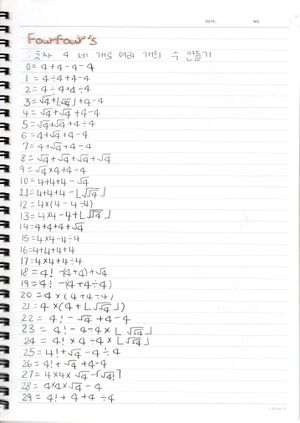 DATE. NO.
Fourfour's
숫자 4 네 개로 여러 개의 수 만들기
0=4+4-4-4
1=4÷4+4-4
2=4÷4+4÷4
3=√4+⌊√√4⌋+4-4
4=√4+√4+4-4
5=√4+√4+4÷4
6=4+√4+4-4
7=4+√4+4÷4
8=√4+√4+√4+√4
9=√4×4+4÷4
10=4+4+4-√4
11=4+4+4-⌊√√4⌋
12=4×(4-4÷4)
13=4×4-4+⌊√√4⌋
14=4+4+4+√4
15=4×4-4÷4
16=4+4+4+4
17=4×4+4÷4
18=4!-(4+4)+√4
19=4!-(4+4÷4)
20=4×(4+4÷4)
21=4×(4+⌊√√4⌋)
22=4!-√4+4-4
23=4!-4÷4×⌊√√4⌋
24=4!×4÷4×⌊√√4⌋
25=4!+√4-4÷4
26=4!+√4+4-4
27=4×4×√4-⌈√4!⌉
28=4×4×√4-4
29=4!+4+4÷4